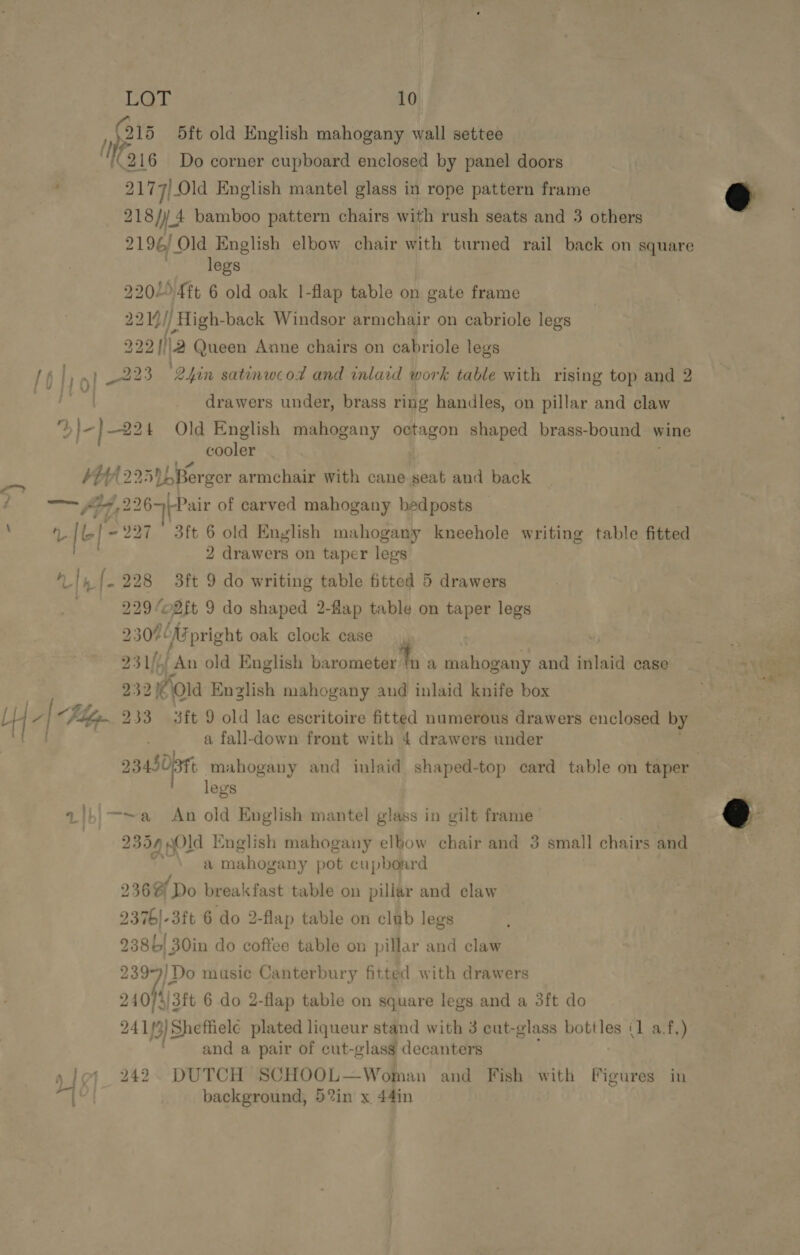 LOT 10
215 5ft old English mahogany wall settee
216 Do corner cupboard enclosed by panel doors
217 Old English mantel glass in rope pattern frame
218 4 bamboo pattern chairs with rush seats and 3 others
219 Old English elbow chair with turned rail back on square
legs
220 4ft 6 old oak 1-flap table on gate frame
221 High-back Windsor armchair on cabriole legs
222 2 Queen Anne chairs on cabriole legs
223 24in satinwood and inlaid work table with rising top and 2
drawers under, brass ring handles, on pillar and claw
224 Old English mahogany octagon shaped brass-bound wine
cooler
225 Berger armchair with cane seat and back
226 Pair of carved mahogany bedposts
227 3ft 6 old English mahogany kneehole writing table fitted
2 drawers on taper legs
228 3ft 9 do writing table fitted 5 drawers
229 2ft 9 do shaped 2-flap table on taper legs
230 Upright oak clock case
231 An old English barometer in a mahogany and inlaid case
232 Old English mahogany and inlaid knife box
233 3ft 9 old lac escritoire fitted numerous drawers enclosed by
a fall-down front with 4 drawers under
234 3ft mahogany and inlaid shaped-top card table on taper
legs
a An old English mantel glass in gilt frame
235 Old English mahogany elbow chair and 3 small chairs and
a mahogany pot cupboard
236 Do breakfast table on pillar and claw
237 3ft 6 do 2-flap table on club legs
238 30in do coffee table on pillar and claw
239 Do music Canterbury fitted with drawers
240 3ft 6 do 2-flap table on square legs and a 3ft do
241 Sheffield plated liqueur stand with 3 cut-glass bottles (1 a.f.)
and a pair of cut-glass decanters
242 DUTCH SCHOOL—Woman and Fish with Figures in
background, 52in x 44in